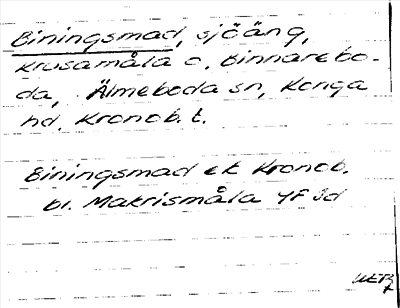 Biningsmad, sjöäng,
Krusamåla o. Binnarebo-
da, Älmeboda sn, Konga
hd. Kronob. l.
Biningsmad ek Kronob.
bl. Makrismåla 4F 3d